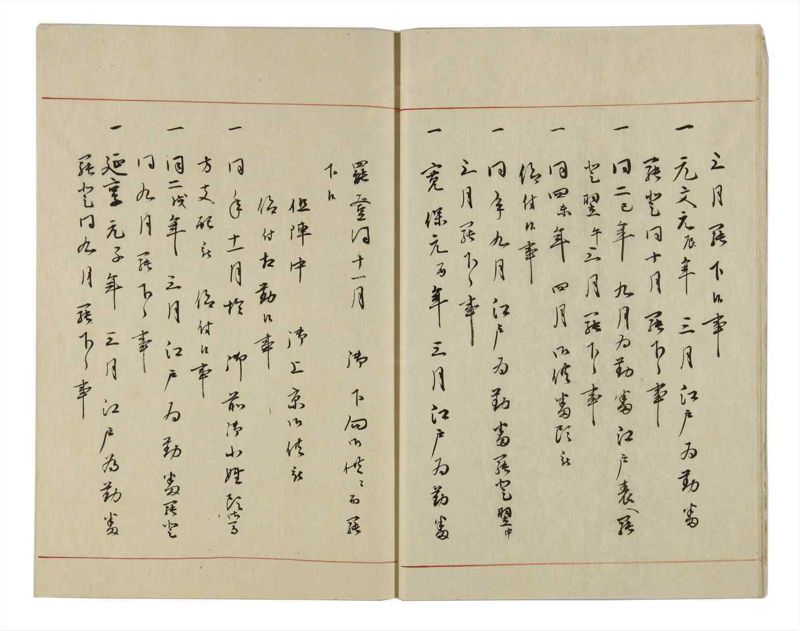 三月罷下候事
一 元文元辰年 三月江戸為勤番
罷登同十月罷下候事
一 同二巳年 九月為勤番江戸表へ罷
登翌午三月罷下候事
一 同四未年 四月御供番頭被
仰付候事
一 同年九月江戸為勤番罷登翌申
三月罷下候事
一 寛保元酉年 三月江戸為勤番
罷登同十一月 御下向御供ニ而罷
下候
但陣中 御上京御供被
仰付相勤候事
一 同年十一月 御前御小姓頭
方支配被 仰付候事
一 同二戌年 三月江戸為勤番罷登
同九月罷下候事
一 延享元子年 三月江戸為勤番
罷登同九月罷下候事